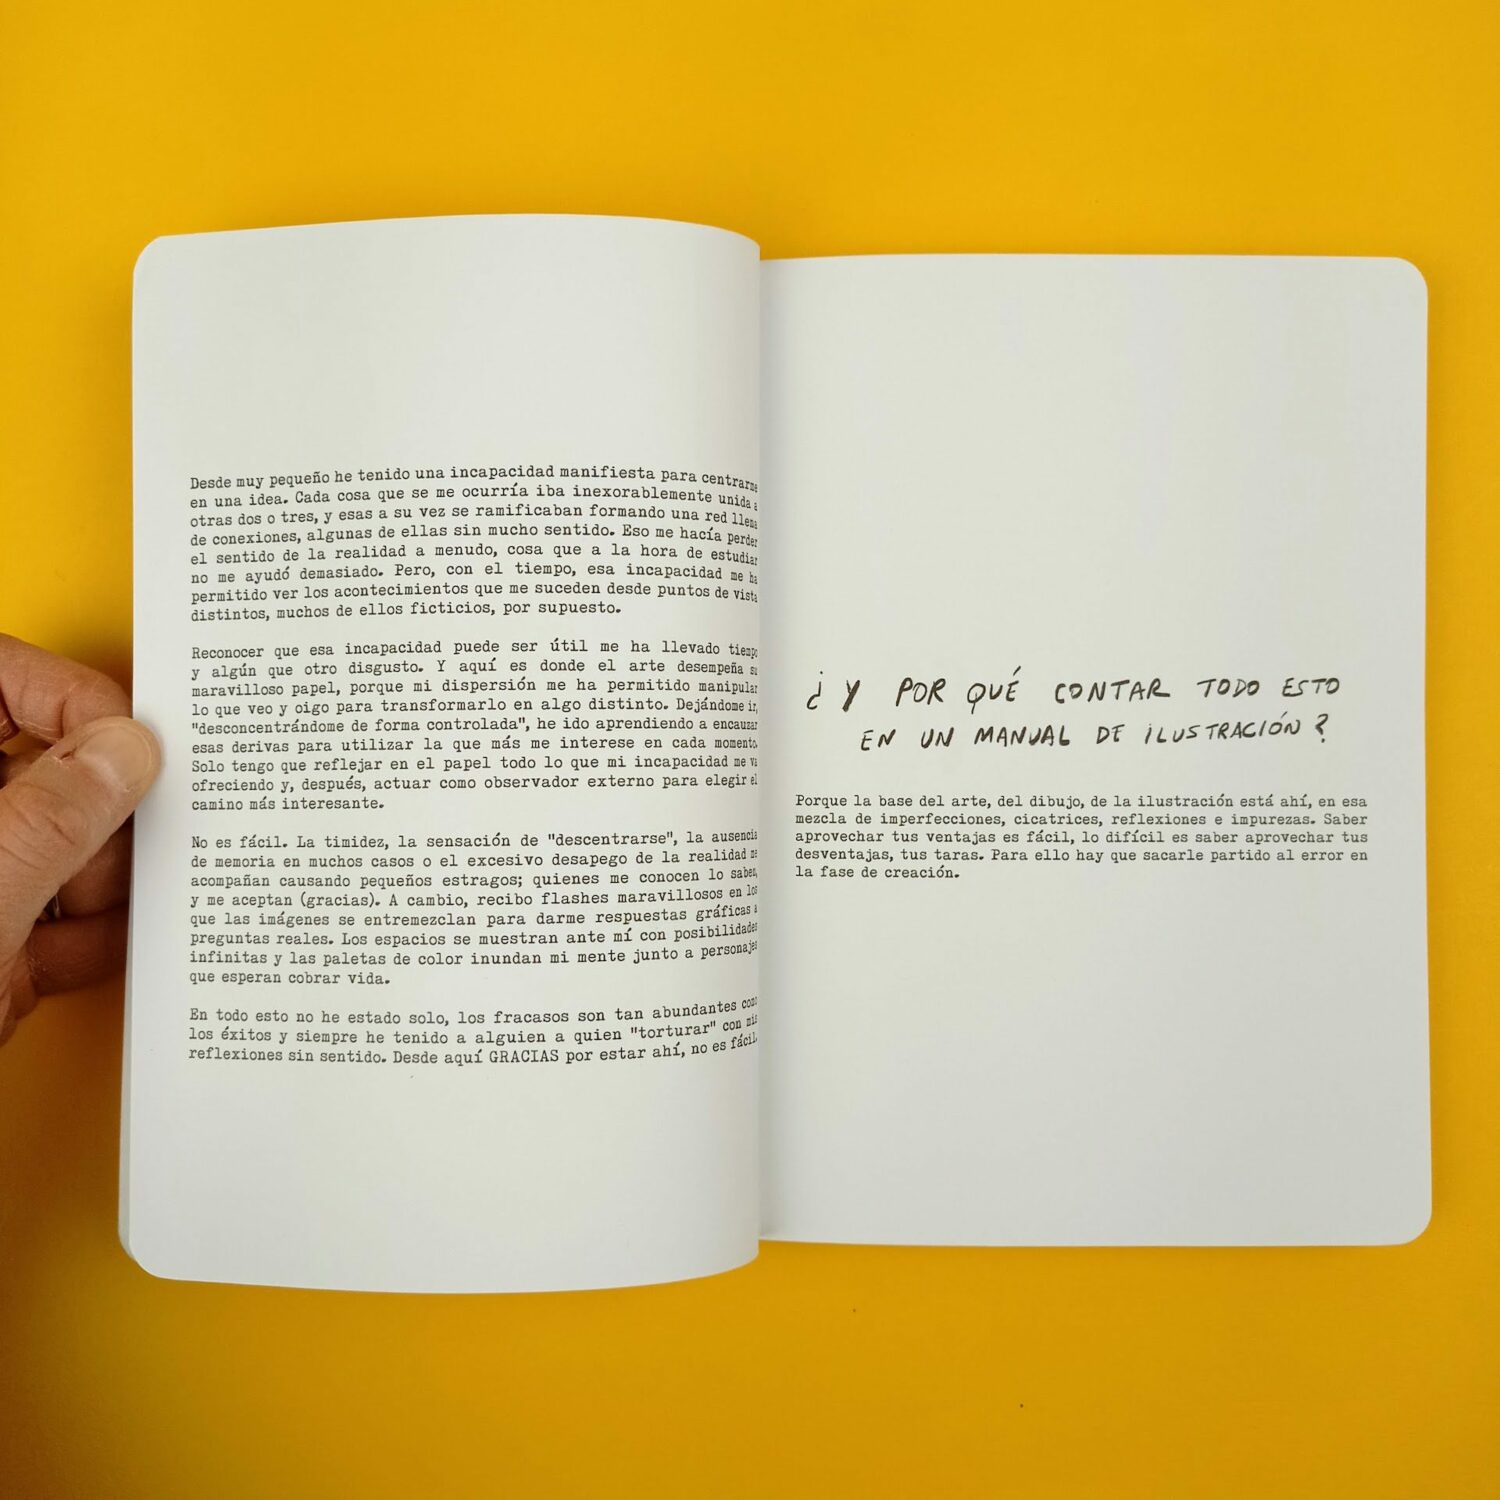 Desde muy pequeño he tenido una incapacidad manifiesta para centrarme
en una idea. Cada cosa que se me ocurría iba inexorablemente unida a
otras dos o tres, y esas a su vez se ramificaban formando una red llena
de conexiones, algunas de ellas sin mucho sentido. Eso me hacía perder
el sentido de la realidad a menudo, cosa que a la hora de estudiar
no me ayudó demasiado. Pero, con el tiempo, esa incapacidad me ha
permitido ver los acontecimientos que me suceden desde puntos de vista
distintos, muchos de ellos ficticios, por supuesto.
Reconocer que esa incapacidad puede ser útil me ha llevado tiempo
y algún que otro disgusto. Y aquí es donde el arte desempeña su
maravilloso papel, porque mi dispersión me ha permitido manipular
lo que veo y oigo para transformarlo en algo distinto. Dejándome ir,
"desconcentrándome de forma controlada", he ido aprendiendo a encauzar
esas derivas para utilizar la que más me interese en cada momento.
Solo tengo que reflejar en el papel todo lo que mi incapacidad me va
ofreciendo y, después, actuar como observador externo para elegir el
camino más interesante.
No es fácil. La timidez, la sensación de "descentrarse", la ausencia
de memoria en muchos casos o el excesivo desapego de la realidad me
acompañan causando pequeños estragos; quienes me conocen lo saben,
y me aceptan (gracias). A cambio, recibo flashes maravillosos en los
que las imágenes se entremezclan para darme respuestas gráficas a
preguntas reales. Los espacios se muestran ante mí con posibilidades
infinitas y las paletas de color inundan mi mente junto a personajes
que esperan cobrar vida.
En todo esto no he estado solo, los fracasos son tan abundantes como
los éxitos y siempre he tenido a alguien a quien "torturar" con mis
reflexiones sin sentido. Desde aquí GRACIAS por estar ahí, no es fácil.
¿Y POR QUÉ CONTAR TODO ESTO
EN UN MANUAL DE ILUSTRACIÓN?
Porque la base del arte, del dibujo, de la ilustración está ahí, en esa
mezcla de imperfecciones, cicatrices, reflexiones e impurezas. Saber
aprovechar tus ventajas es fácil, lo difícil es saber aprovechar tus
desventajas, tus taras. Para ello hay que sacarle partido al error en
la fase de creación.